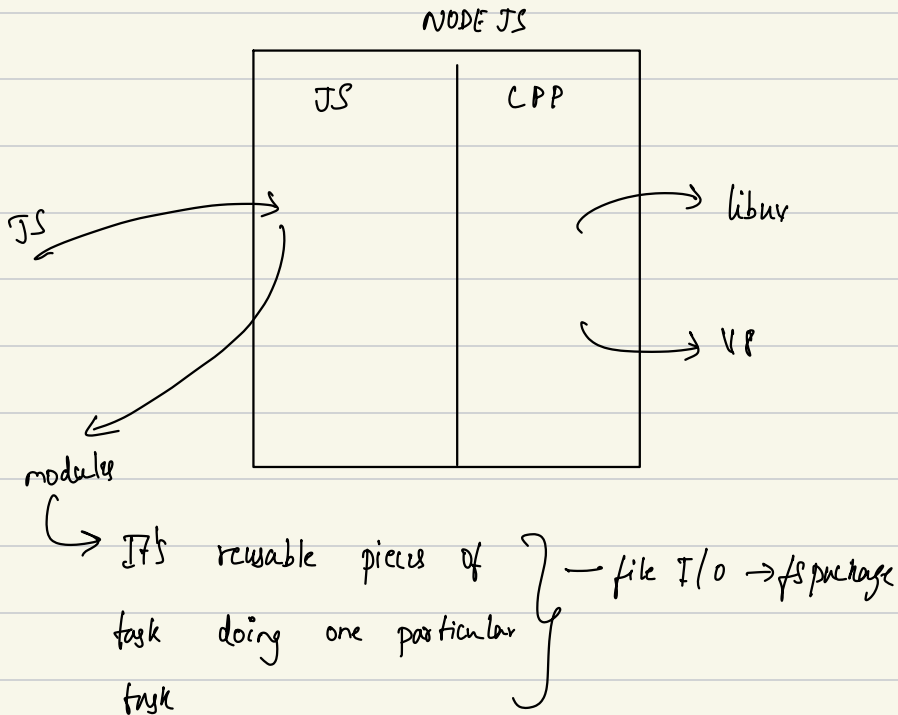 NODE JS
JS
CPP
JS
libuv
V8
modules
It's reusable pieces of
task doing one particular
task
file I/O → fs package